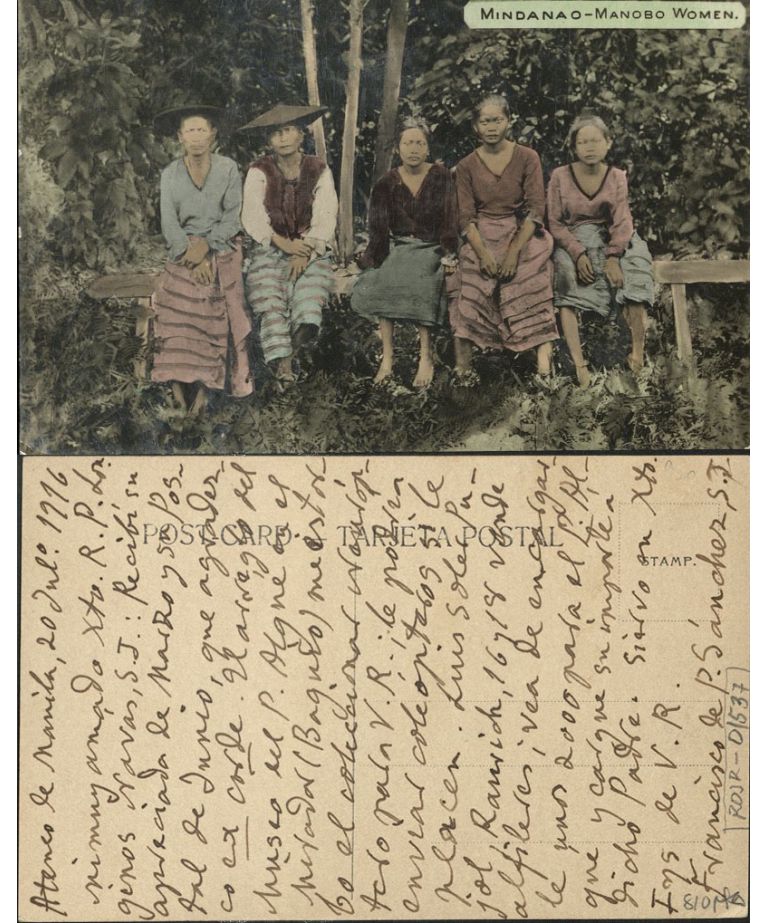 MINDANAO-MANOBO WOMEN.
POST-CARD - TARJETA POSTAL
STAMP.
Ateneo de Manila, 20 Jul.º 1916
Mi muy amado Xto. R. P. Lon-
ginos Navas, S.J.: Recibí su
apreciada de Marzo y su Pos-
tal de Junio, que agradez-
co ex corde. El arreglo del
Museo del P. Algué en el
Mirador (Baguio) me estor-
bo el coleccionar neuróp-
tero para V. R.; le podría
enviar coleópteros si le
placen. Luis Soler Pu-
jol, Raurich, 16 y 18 vende
alfileres; vea de encargar-
le unos 2000 para el P. Al-
gué y cargue su importe á
dicho Padre. Siervo en Xto.
de V. R.
Francisco de P. Sánchez, S.J.
ROJR-01537